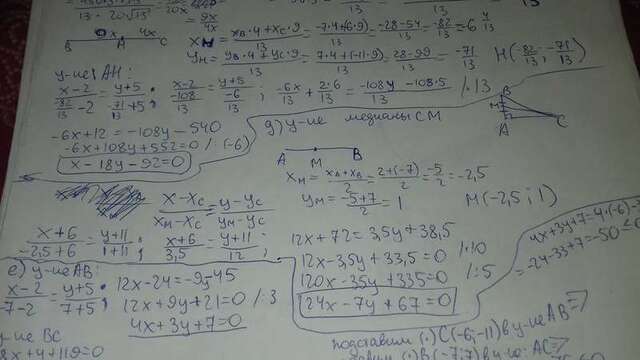 13 · 20√13
9x
4x
B A 4x C
x_H = x_B·4+x_C·9 / 13 = -7·4+(-6)·9 / 13 = -28-54 / 13 = -82 / 13 = -6 4/13
y_H = y_B·4+y_C·9 / 13 = 7·4+(-11·9) / 13 = 28-99 / 13 = -71 / 13 H(-82/13; -71/13)
у-ие AH:
x-2 / -82/13 -2 = y+5 / -71/13 +5 ; x-2 / -108/13 = y+5 / -6/13 ; -6x/13 + 2·6/13 = -108y - 108·5 / 13 /·13
-6x+12 = -108y - 540
-6x+108y+552=0 /:(-6)
x-18y-92=0
д) у-ие медианы CM
A M B
x_M = x_A+x_B / 2 = 2+(-7) / 2 = -5/2 = -2,5
y_M = -5+7 / 2 = 1 M(-2,5; 1)
B
M
A C
x-x_C / x_M-x_C = y-y_C / y_M-y_C
x+6 / -2,5+6 = y+11 / 1+11 ; x+6 / 3,5 = y+11 / 12 ;
12x+72=3,5y+38,5
12x-3,5y+33,5=0 /·10
120x-35y+335=0 /:5
24x-7y+67=0
4x+3y+7=4·(-6)-
=-24-33+7=-50<0
е) у-ие AB:
x-2 / -7-2 = y+5 / 7+5 ;
12x-24=-9y-45
12x+9y+21=0 /:3
4x+3y+7=0
у-ие BC
8x+y+119=0
подставим (·)C(-6;-11) в у-ие AB=>
(·)B(-7;7) в у-ие AC=>